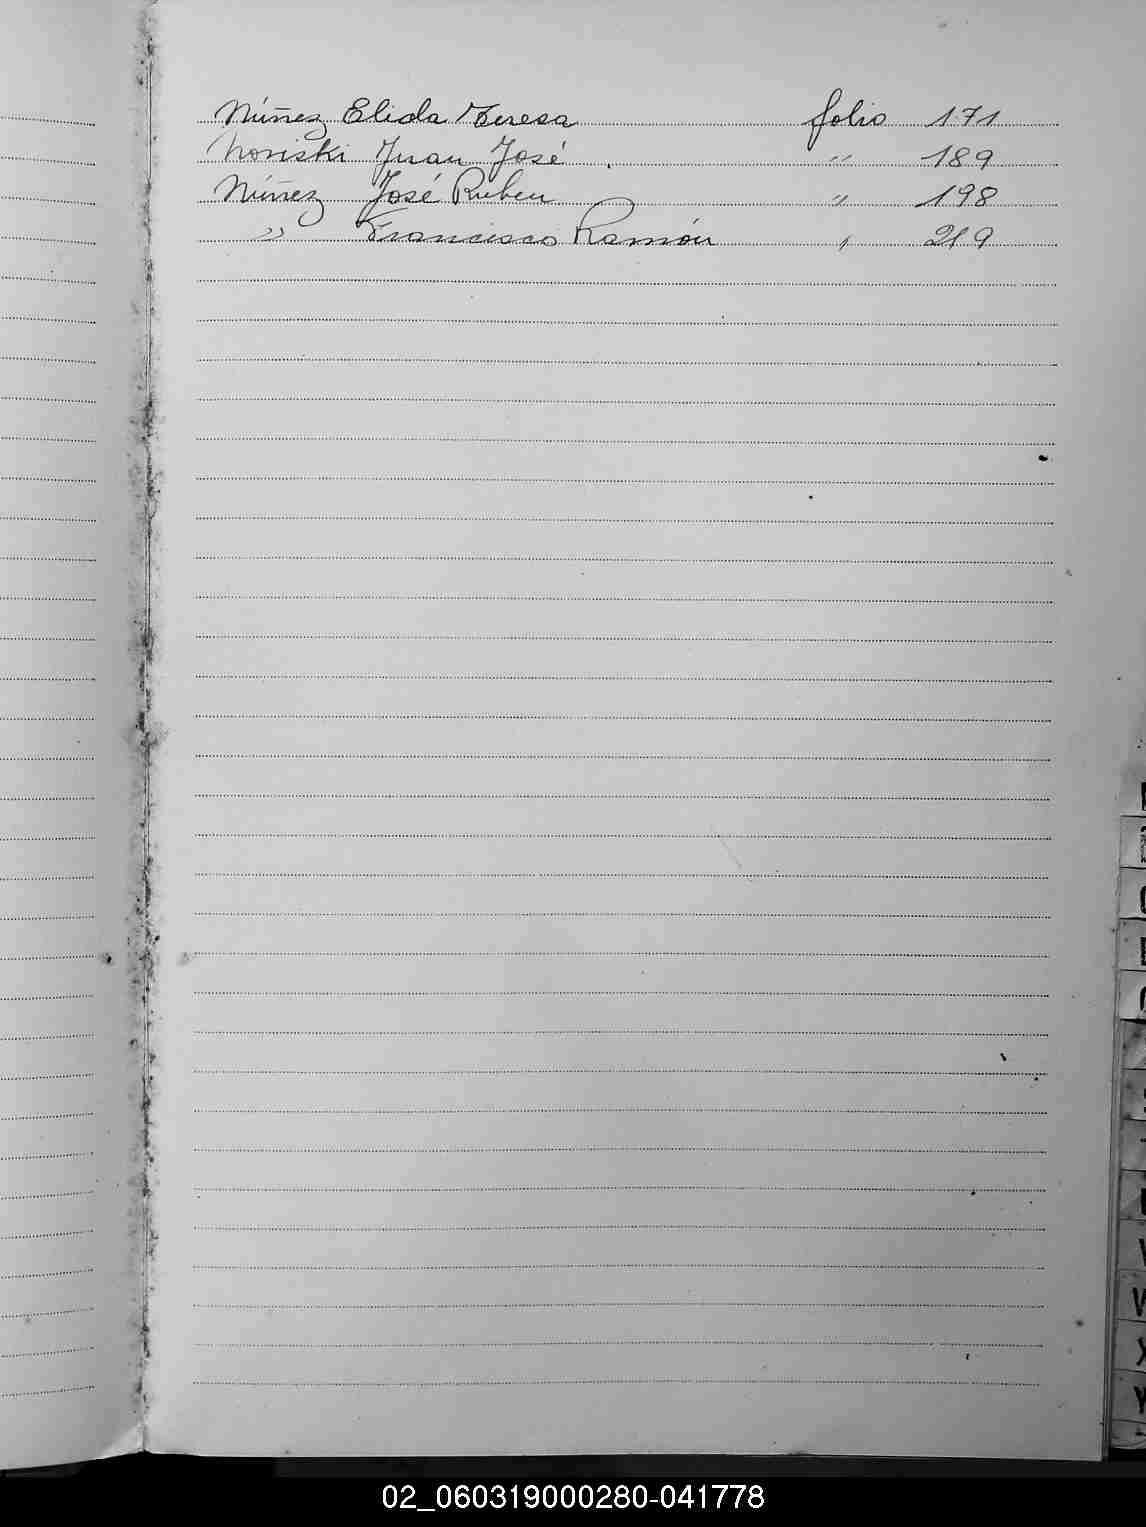 Núñez Elida Teresa folio 171
Noriski Juan José . " 189
Núñez José Ruben " 198
" Francisco Ramón " 219
W
X
Y
02_060319000280-041778